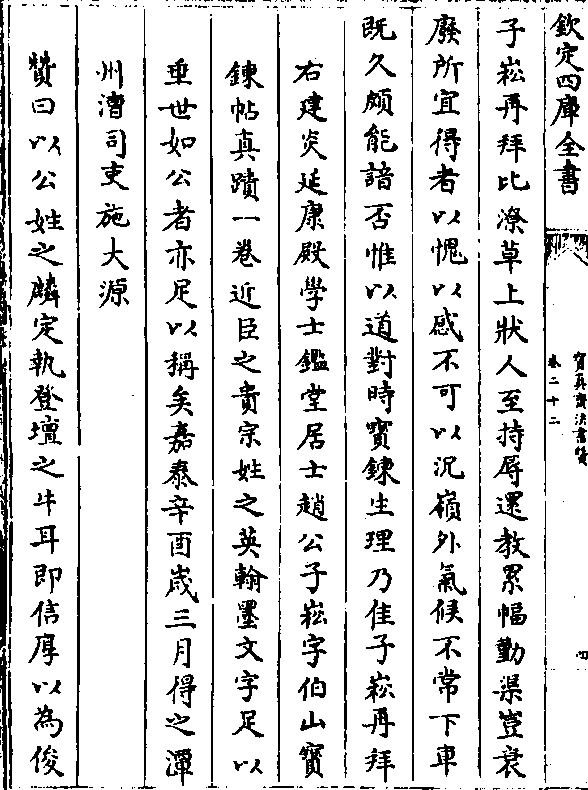 欽定四庫全書
寳真齋法書贊
卷二十二
四
子崧再拜比潦草上狀人至持辱還教累幅勤渠豈衰
廢所宜得者以愧以感不可以況嶺外氣候不常下車
既久頗能諳否惟以道對時寳錬生理乃佳子崧再拜
右建炎延康殿學士鑑堂居士趙公子崧字伯山寳
錬帖真蹟一卷近臣之貴宗姓之英翰墨文字足以
垂世如公者亦足以稱矣嘉泰辛酉嵗三月得之潭
州漕司吏施大源
贊曰以公姓之麟定執登壇之牛耳即信厚以為俊